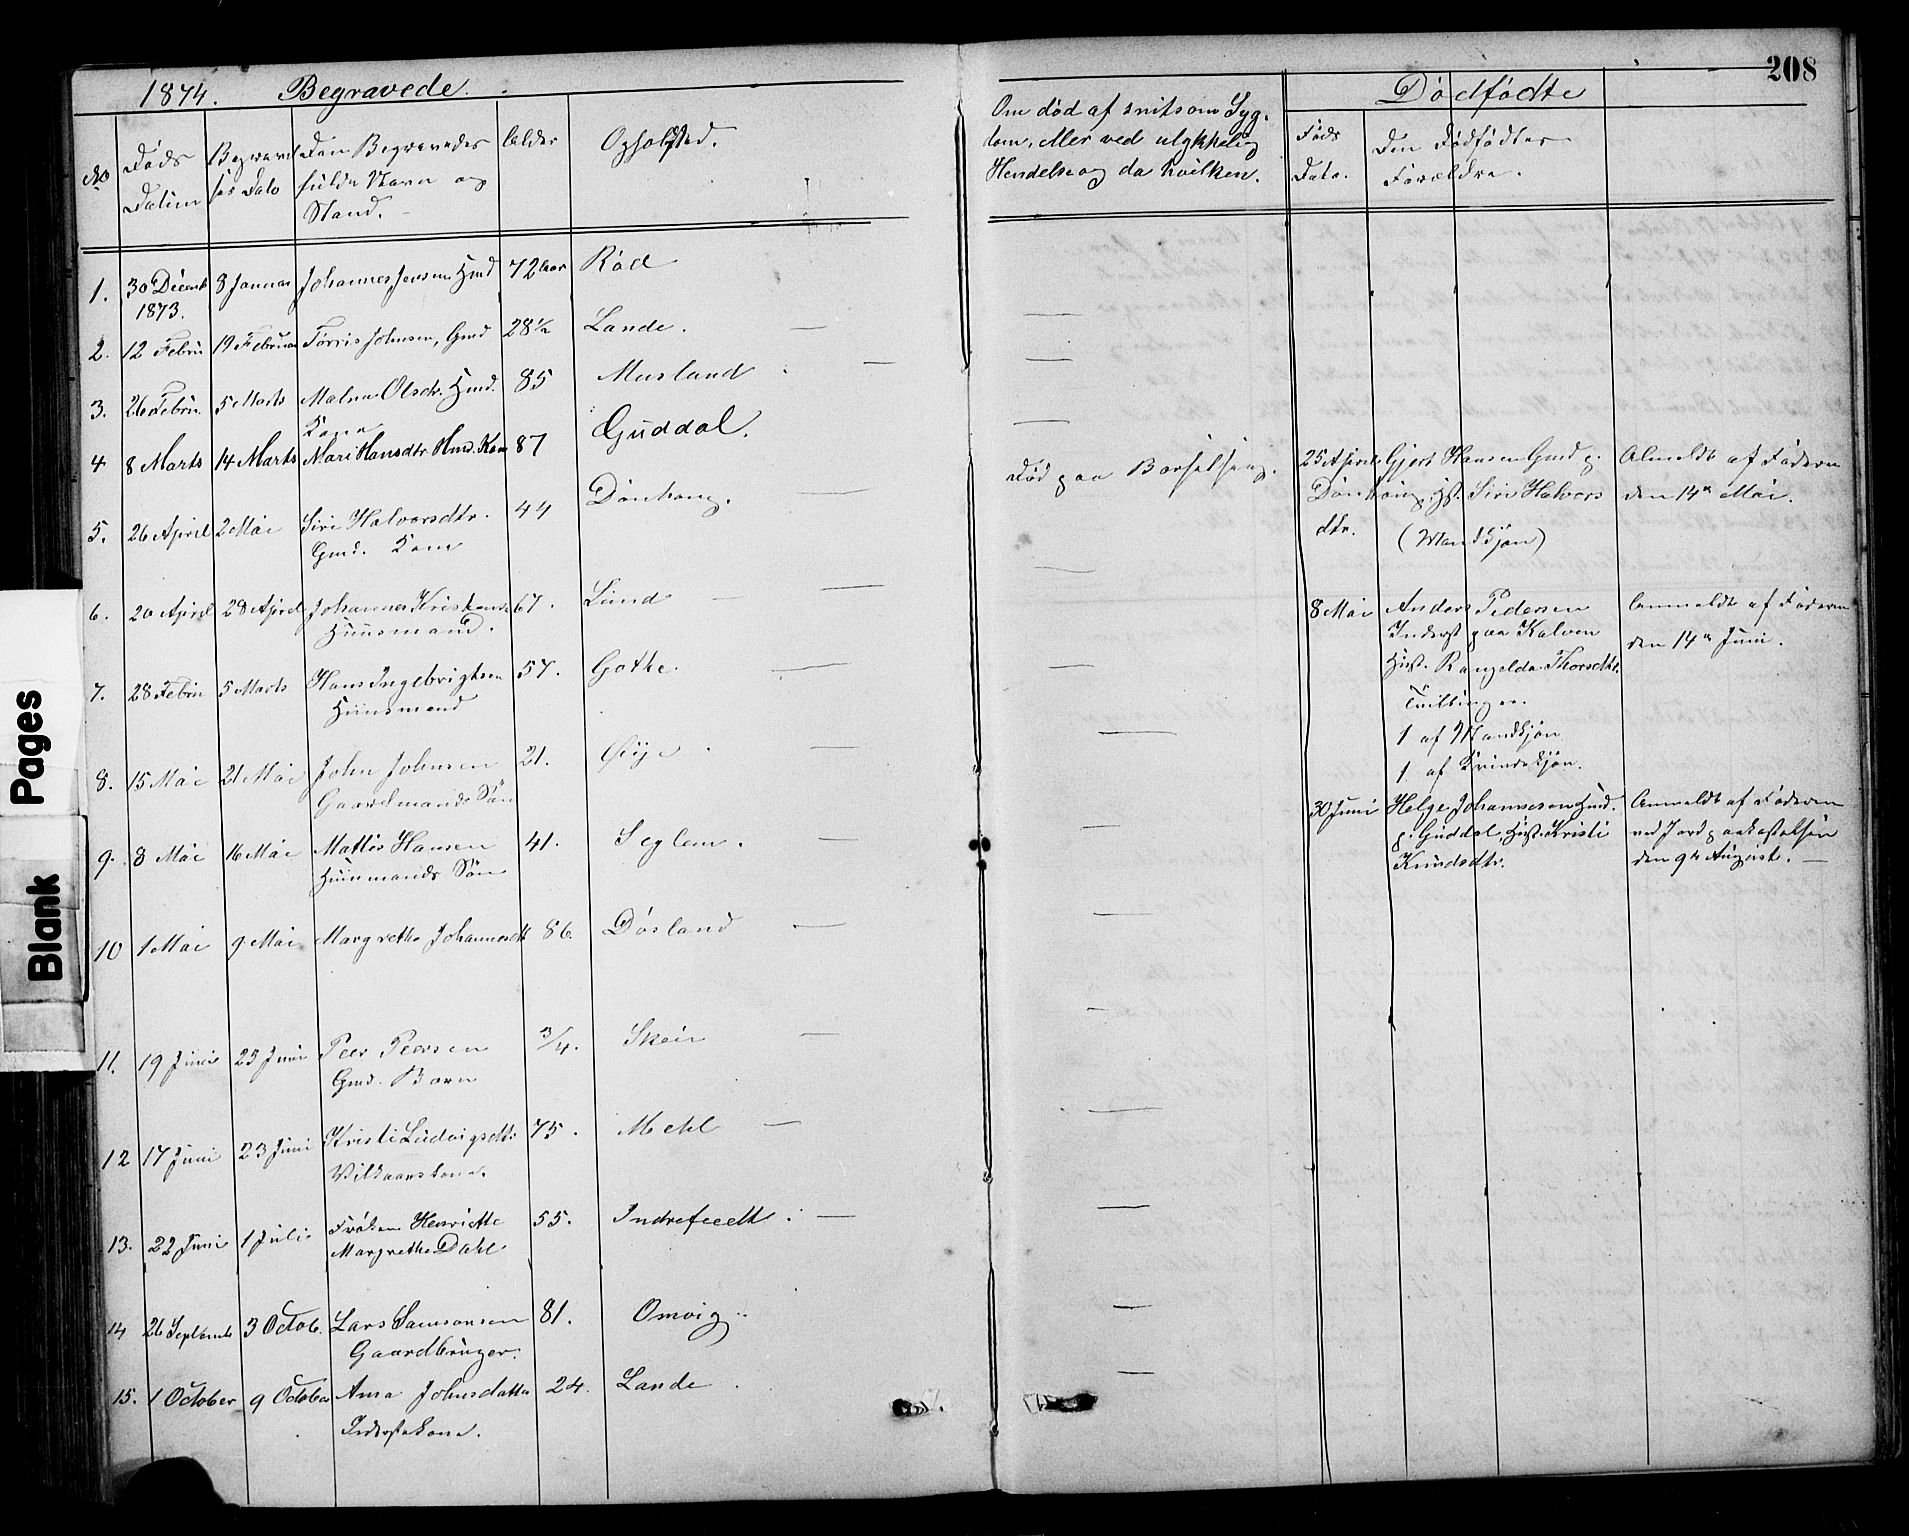 208
1874. Begravede.
No
Døds Datum
Begravelses Dato
Den Begravedes fulde Navn og Stand.
Alder
Opholdsted.
Om død af smitsom Sygdom, eller ved ulykkelig Hendelse og da hvilken.
Dødfødte
Føds Dato.
Den Dødfødtes Forældre.
1. 30 Decemb 1873. 8 Januar Johannes Jensen Hmd 72 Aar Rød
2. 12 Febru 19 Februar Torris Johnsen, Gmd 28½ Lande. —
3. 26 Febru. 5 Marts Malene Olsdtr. Hmd. Kone 85 Musland —
4 8 Marts 14 Marts Mari Hansdtr Hmd. Kone 87 Guddal.
5. 26 April 2 Mai Siri Halvorsdtr. Gmd. Kone 44 Dönhaug. Død paa Barselseng.
6. 20 April 28 April Johannes Kristens Huusmand. 67. Lund —
7. 28 Febru 5 Marts Hans Ingebrigtsen Huusmand 57. Gothe. —
8. 15 Mai 21 Mai John Johnsen Gaardmands Søn 21. Øije —
9. 8 Mai 16 Mai Mattis Hansen Huusmands Søn 41. Seglem. —
10 1 Mai 9 Mai Margrethe Johannesdt 86. Døsland —
11. 19 Juni 23 Juni Peer Peersen Gmd. Barn 3/4. Skeie —
12 17 Juni 23 Juni Kristi Ludvigsdtr Vilkaarskone. 75. Mehl —
13. 22 Juni 1 Juli Frøken Henriette Margrethe Dahl. 55. —
14 26 Septemb 3 Octob. Lars Samsonsen Gaardbruger. 81. Omvig
15. 1 October 9 October Ana Johnsdatter Inderstkone. 24. Lande
25 April Gjert Hansen Gmd p.
Dönhaug, Hst. Siri Halvors
dtr. (Mandkjøn)
Anmeldt af Faderen
den 14de Mai.
8 Mai Anders Pedersen
Inderst paa Kalven
Hust. Rangelda Thorsdtr.
Tvillinger.
1 af Mandkjøn
1 af Kvindekjøn.
Anmeldt af Faderen
den 14de Juni.
30 Juni Helge Johannesen Hmd.
p. Guddal Hust. Kristi
Knudsdtr.
Anmeldt af Faderen
ved Jordpaakastelsen
den 9de August. —
Blank Pages